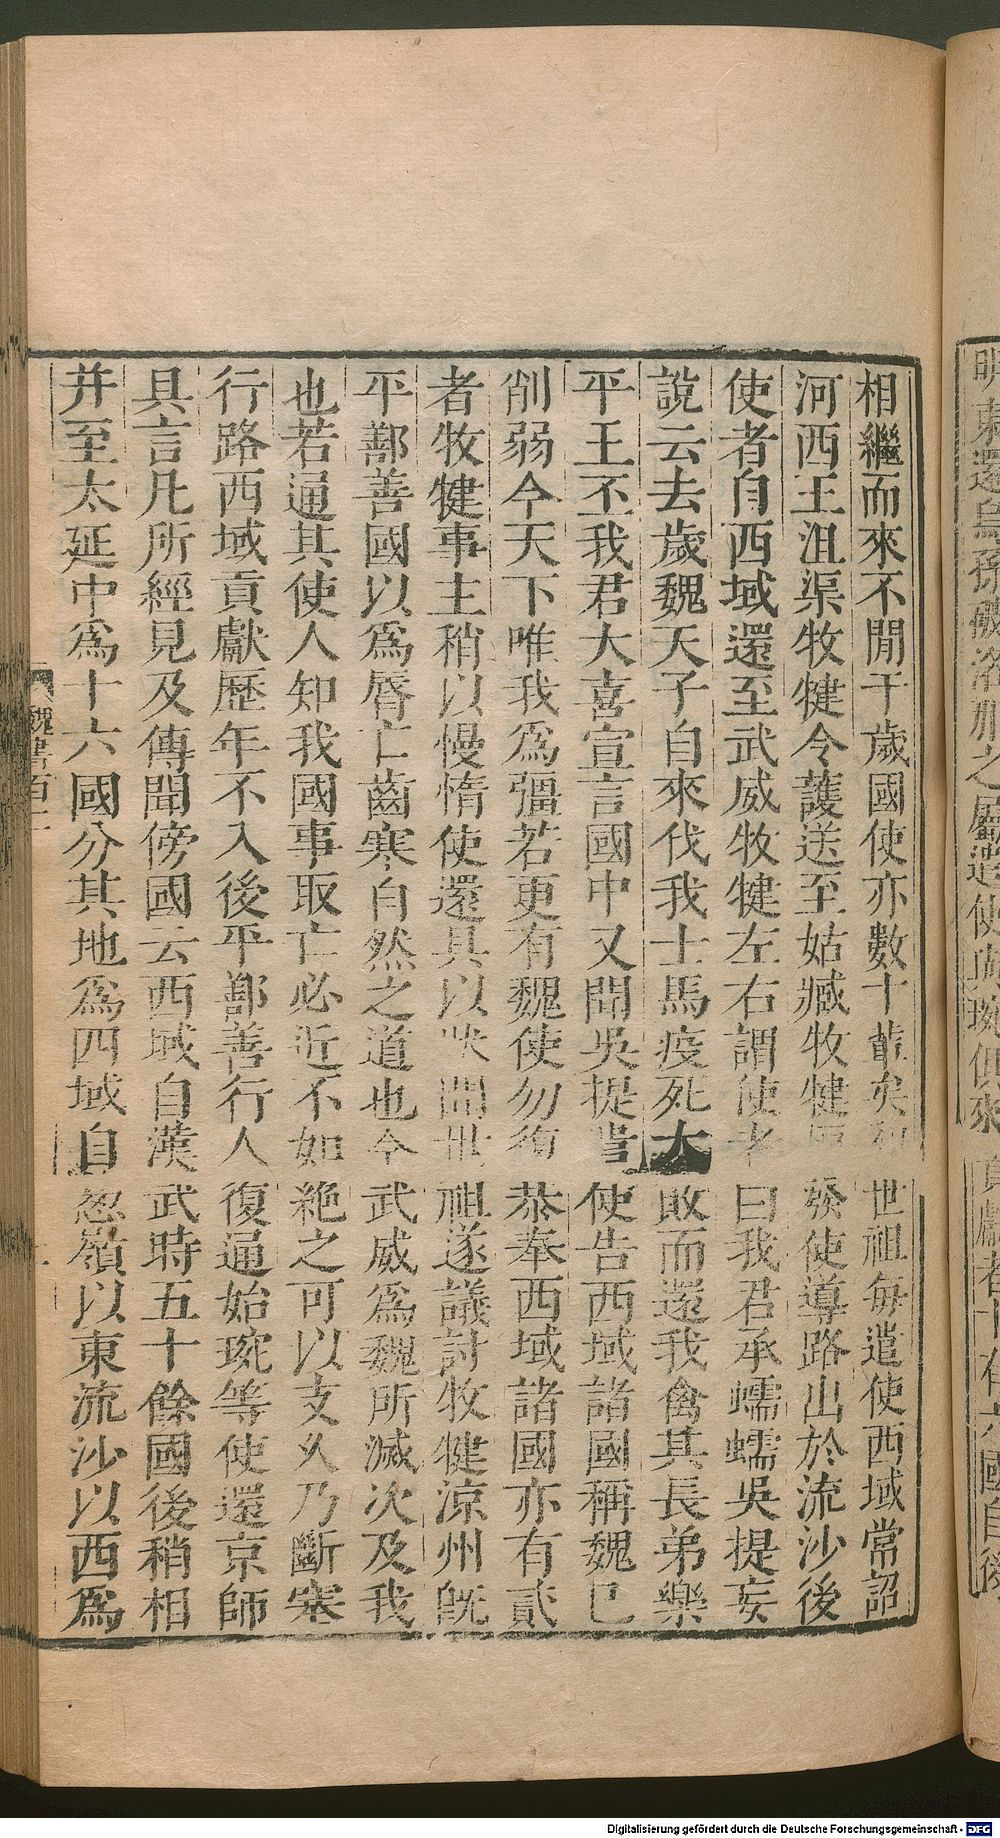 相繼而來不間于歲國使亦數十輩矣初世祖每遣使西域常詔
河西王沮渠牧犍令護送至姑臧牧犍恒發使導路出於流沙後
使者自西域還至武威牧犍左右謂使者曰我君承蠕蠕吳提妄
說云去歲魏天子自來伐我士馬疫死大敗而還我禽其長弟樂
平王丕我君大喜宣言國中又聞吳提遣使告西域諸國稱魏已
削弱今天下唯我爲彊若更有魏使勿復恭奉西域諸國亦有貳
者牧犍事主稍以慢惰使還具以狀聞世祖遂議討牧犍涼州既
平鄯善國以爲脣亡齒寒自然之道也今武威爲魏所滅次及我
也若通其使人知我國事取亡必近不如絶之可以支久乃斷塞
行路西域貢獻歷年不入後平鄯善行人復通始琬等使還京師
具言凡所經見及傳聞傍國云西域自漢武時五十餘國後稍相
并至太延中爲十六國分其地爲四域自葱嶺以東流沙以西爲
魏書百二
明東還烏孫破洛那之屬遣使與琬俱來貢獻者十有六國自後
Digitalisierung gefördert durch die Deutsche Forschungsgemeinschaft - DFG